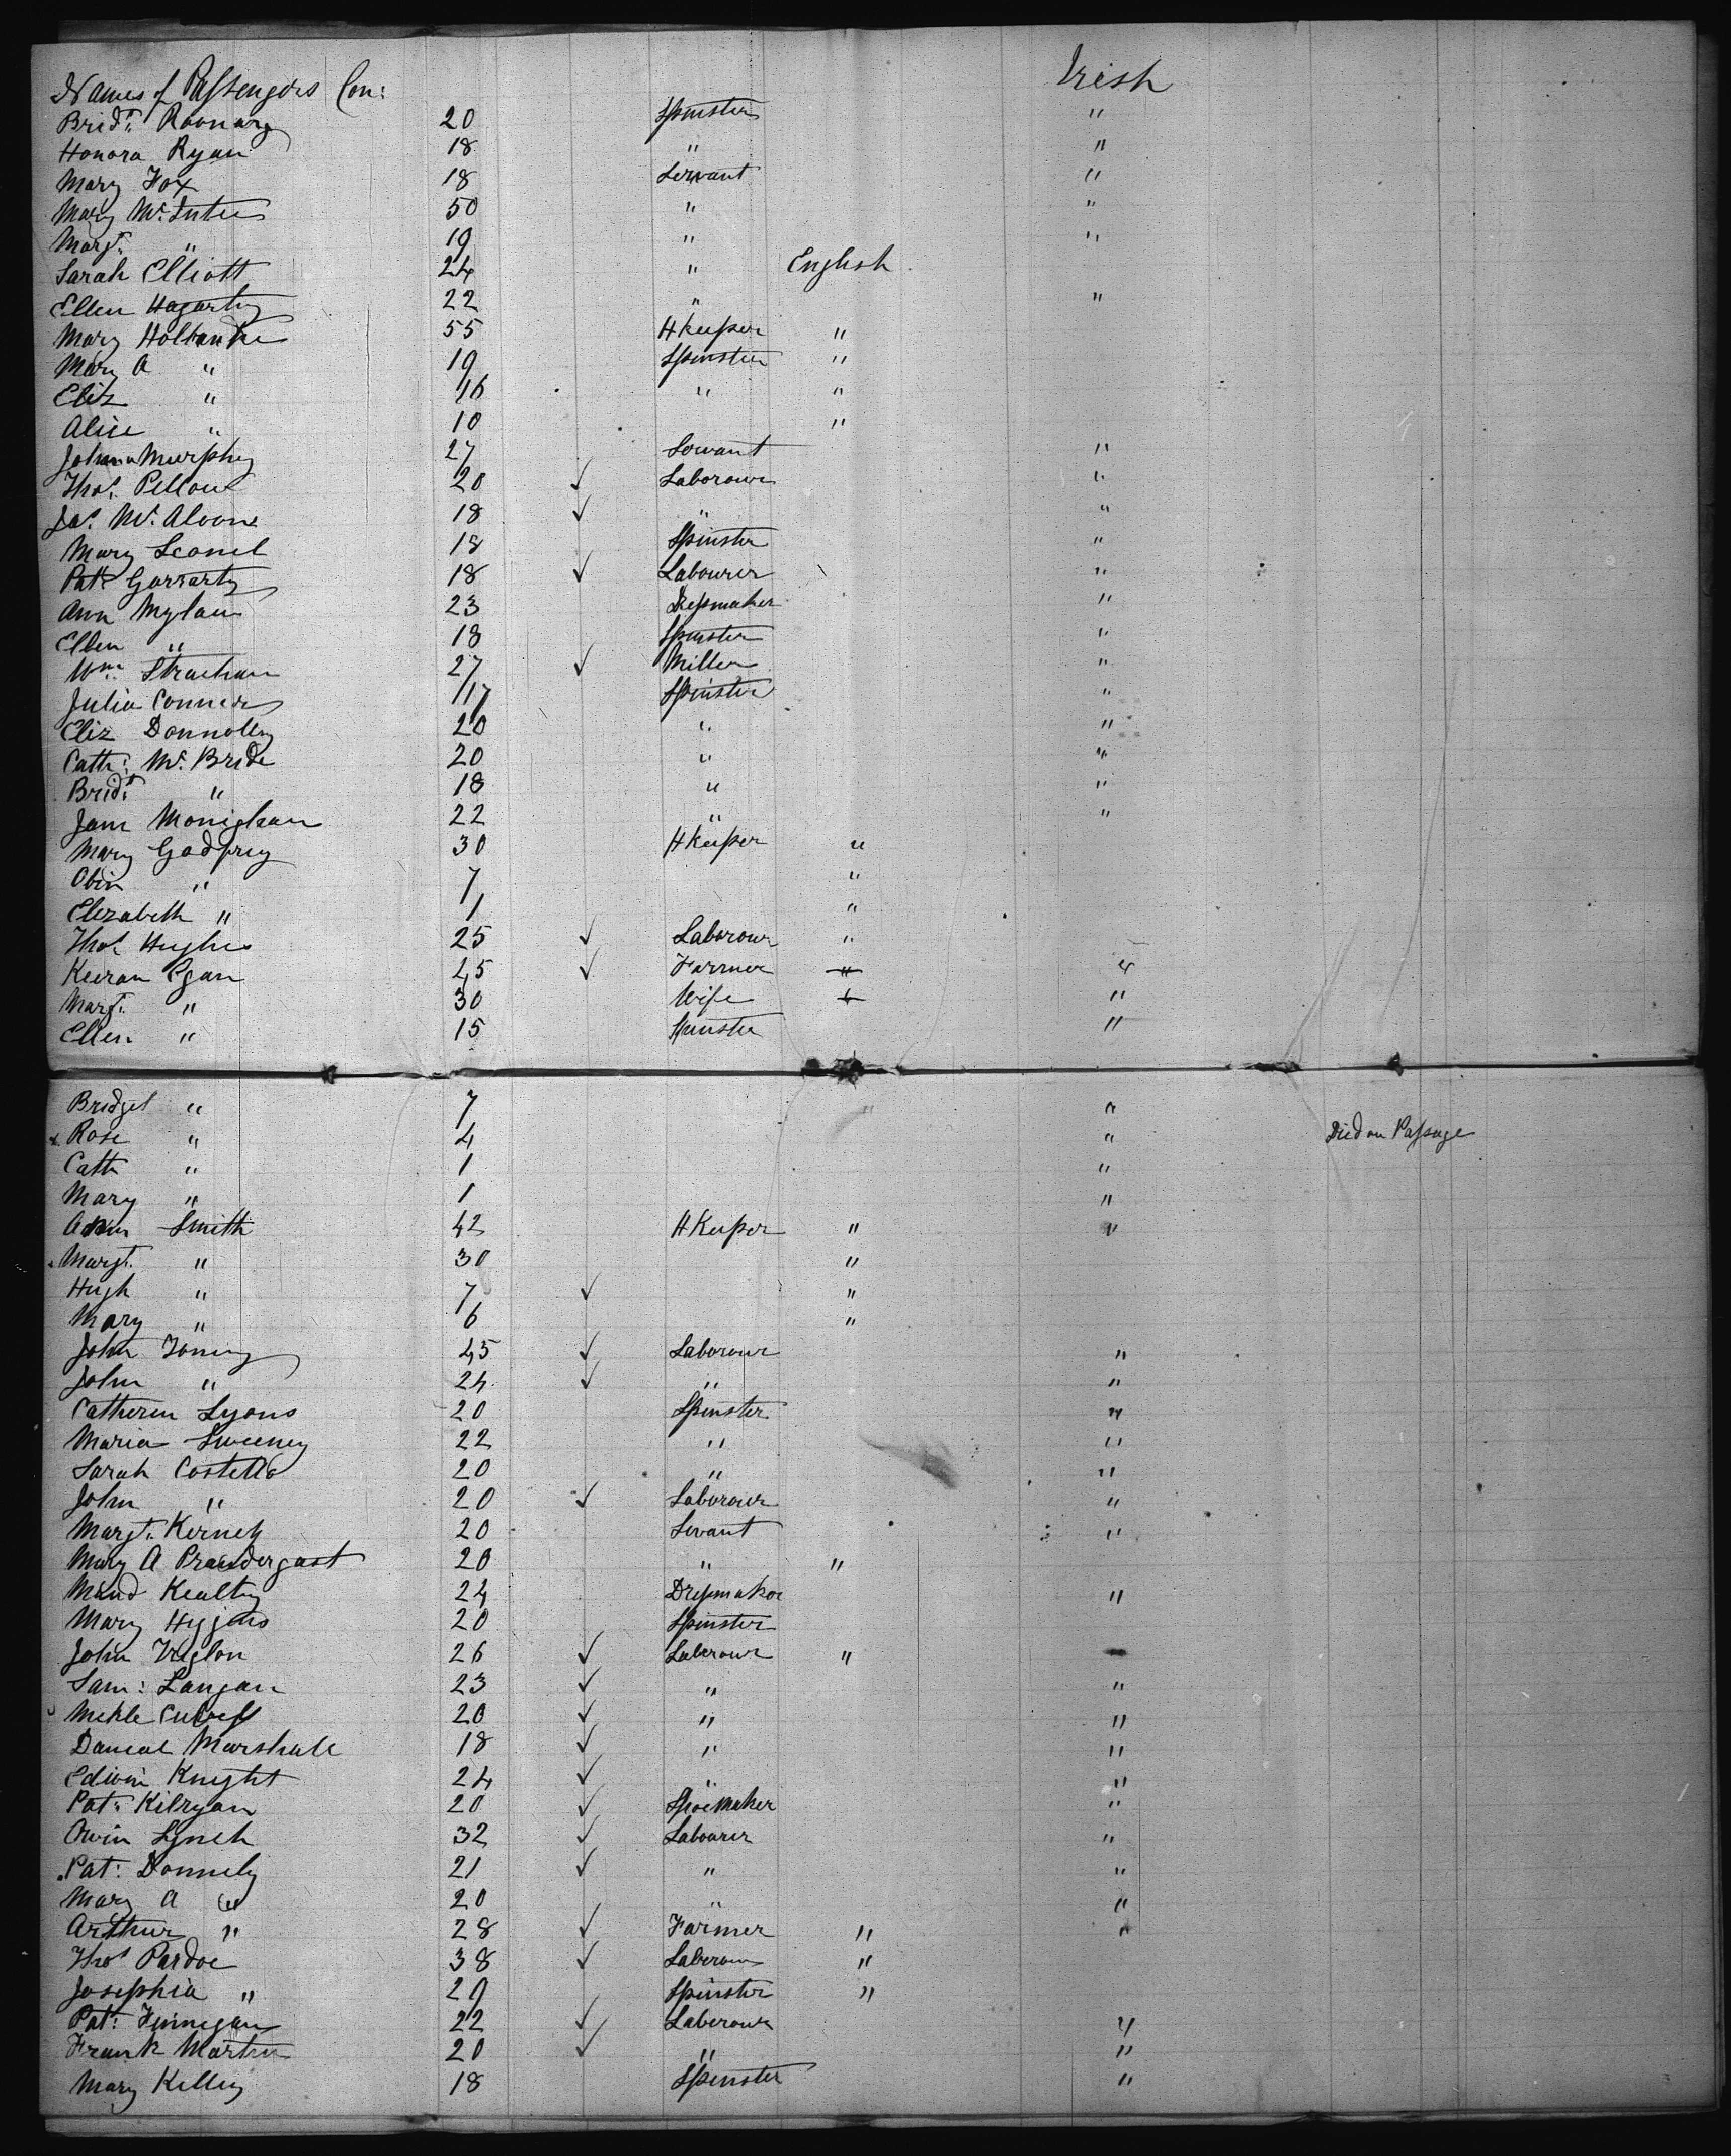 Names of Passengers Con: Irish
Bridt. Roonary 20 Spinster "
Honora Ryan 18 " "
Mary Fox 18 Servant "
Mary Mc. 50 " "
Margt. " 19 " "
Sarah Elliott 24 " English
Ellen Hagarty 22 " "
Mary 55 HKeeper "
Mary A " 19 Spinster "
Eliz " 16 " "
Alice " 10 "
Murphy 27 Servant "
Thos. 20 ✓ Laborour "
Jas. Mc. 18 ✓ " "
Mary 18 Spinster "
Patk Garrarty 18 ✓ Labourer "
Ann Mylan 23 Dressmaker "
Ellen " 18 Spinster "
Wm. Strachan 27 ✓ Miller "
Julia Conners 17 Spinster "
Eliz Donnolly 20 " "
Cath: Mc. Bride 20 " "
Bridt " 18 " "
Jane Monighan 22 " "
Mary Godfrey 30 HKeeper "
" 7 "
Elizabeth " 1 "
Thos Hughes 25 ✓ Laborour "
Kieran Egan 45 ✓ Farmer "
Margt. " 30 Wife "
Ellen " 15 Spinster "
Bridget " 7 "
x Rose " 4 " Died on Passage
Cath " 1 "
Mary " 1 "
Smith 42 HKeeper " "
Margt. " 30 "
Hugh " 7 ✓ "
Mary " 6 "
John 45 ✓ Laborour "
John " 24 ✓ " "
Catheren Lyons 20 Spinster "
Maria Sweeney 22 " "
Sarah Costello 20 " "
John " 20 ✓ Laborour "
Margt. Kerney 20 Servant "
Mary A Prandergast 20 " "
Kealty 24 Dressmaker "
Mary Higgins 20 Spinster
John 26 ✓ Laborour "
Sam: Langan 23 ✓ " "
20 ✓ " "
Daneal Marshall 18 ✓ " "
Edwin Knight 24 ✓ " "
Pat: Kilryan 20 ✓ Shoemaker "
Owin Lynch 32 ✓ Labourer "
Pat: Donnely 21 ✓ " "
Mary A " 20 " "
Arthur " 28 ✓ Farmer " "
Thos Pardoe 38 ✓ Laborour "
Josephia " 29 Spinster "
Pat: Finnegan 22 ✓ Laborour "
Frank Martin 20 ✓ " "
Mary Kelley 18 Spinster "